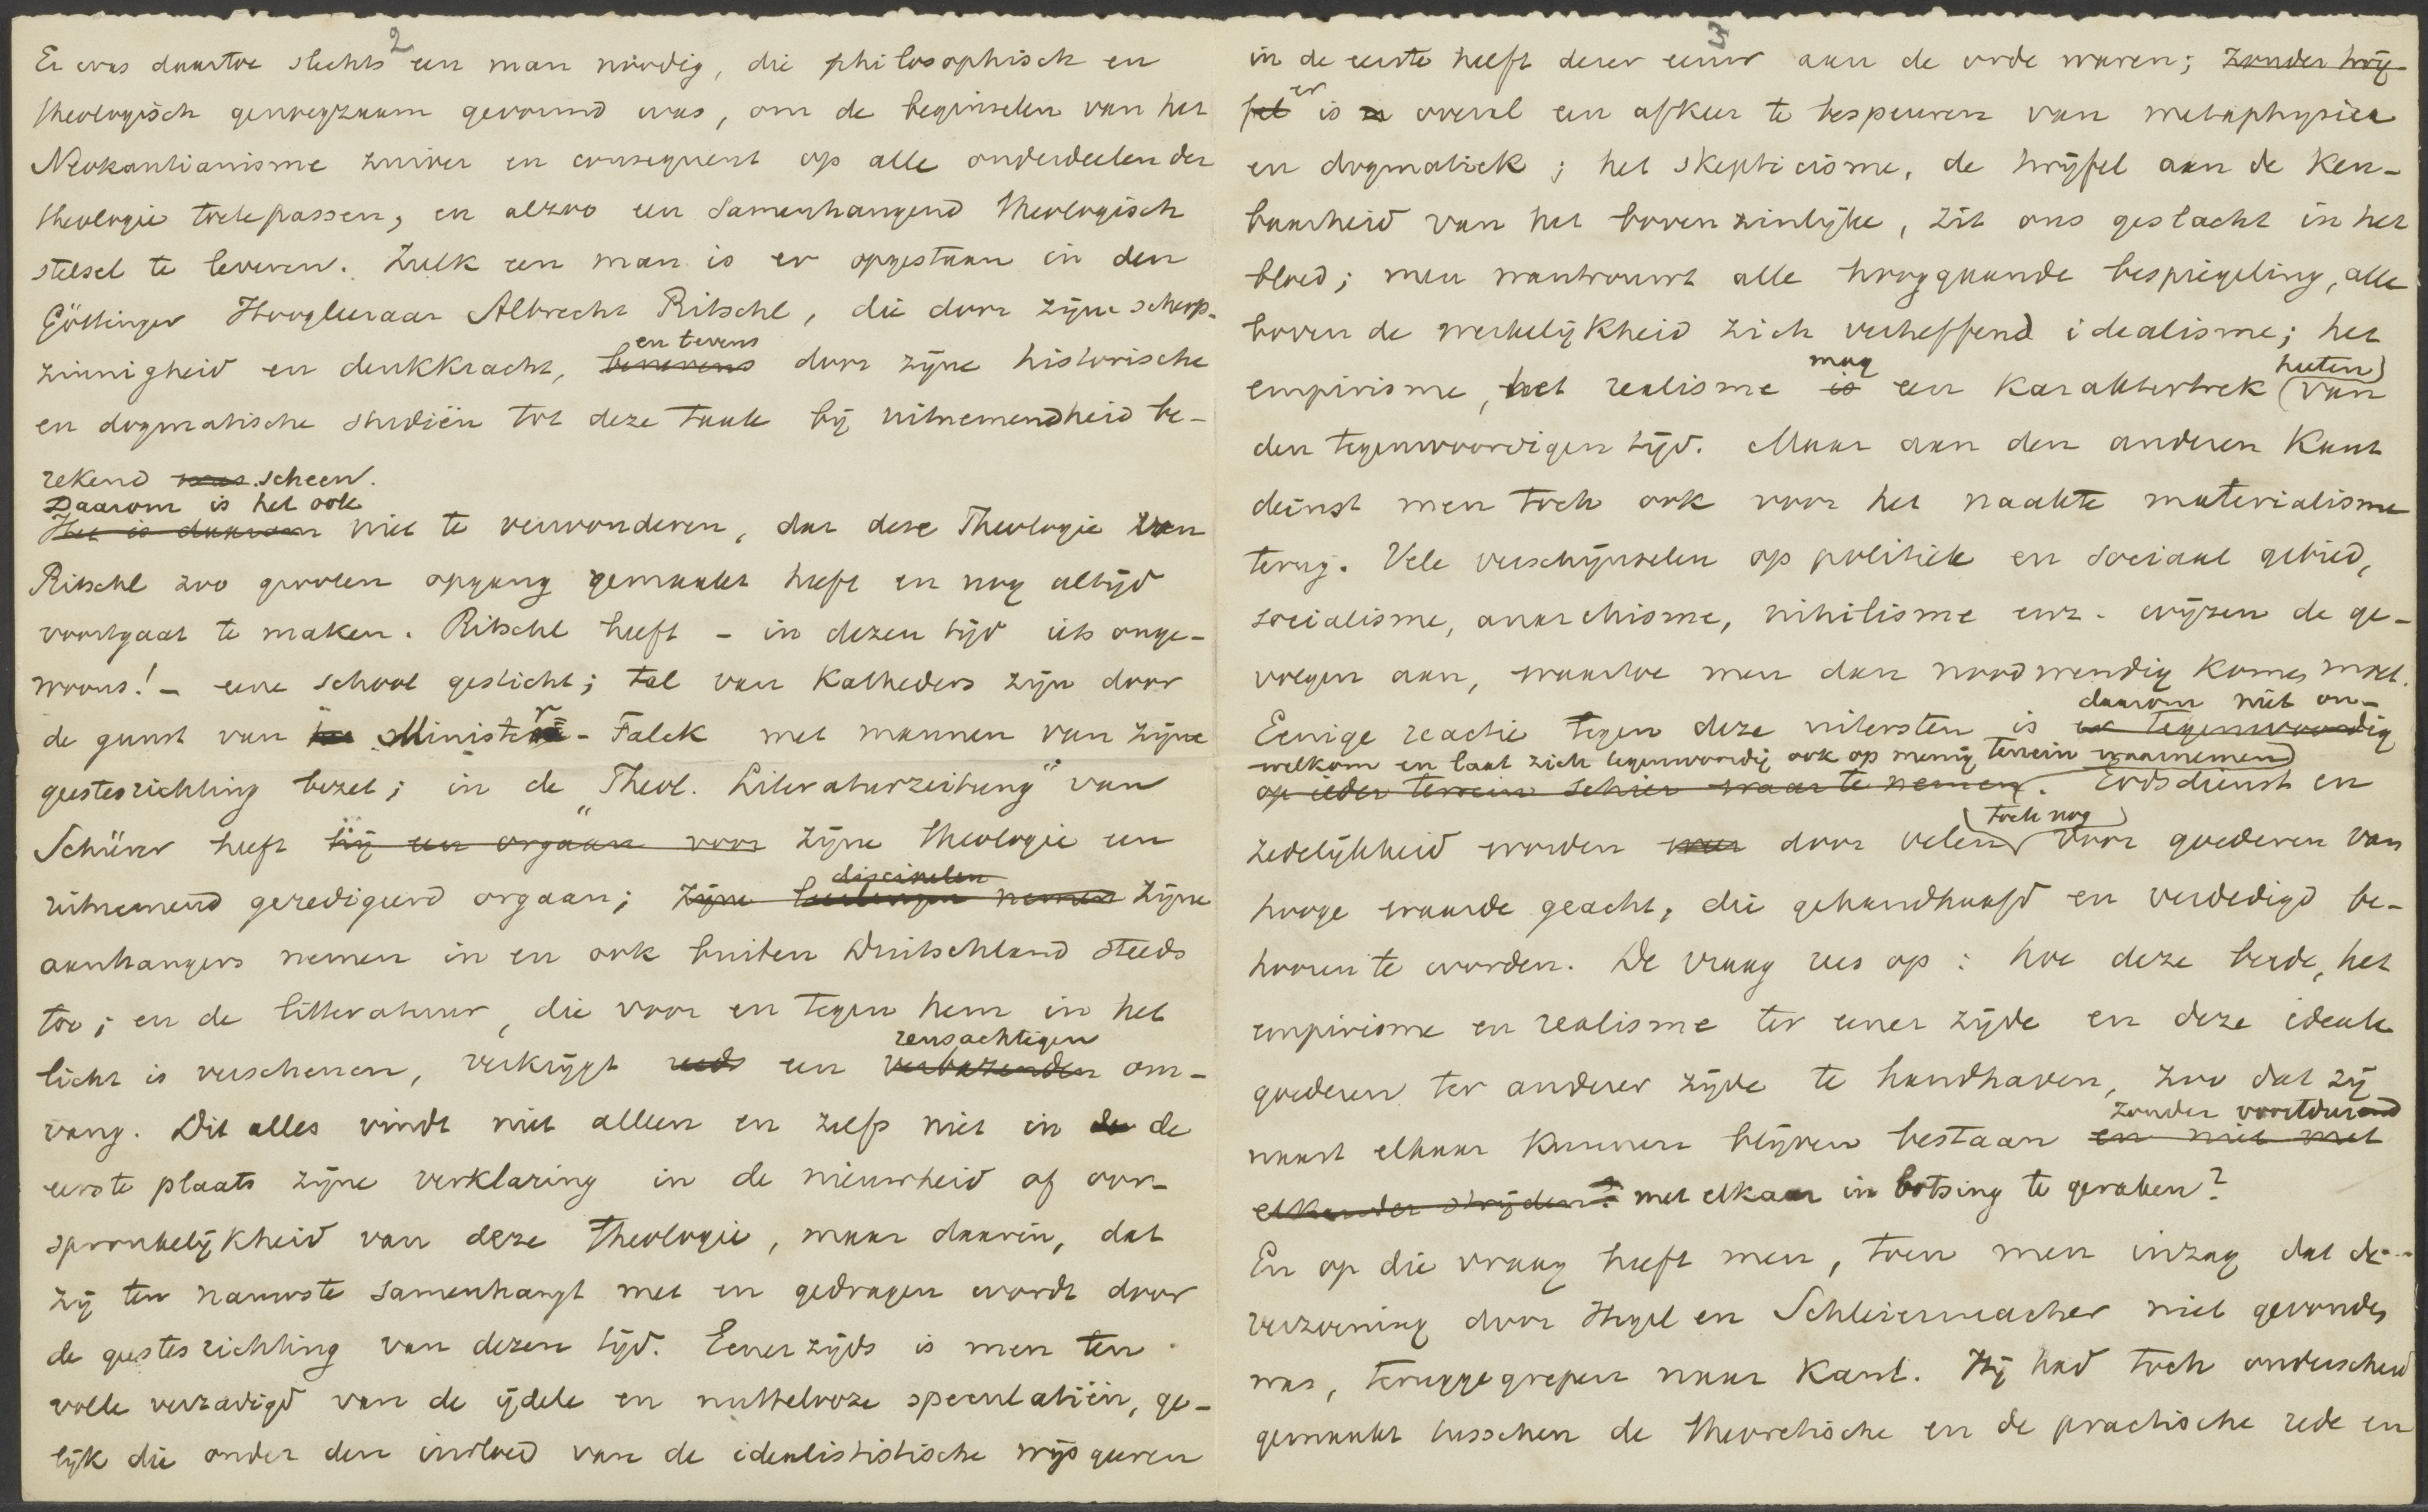 2
Er was daartoe slechts een man noodig, die philosophisch en
theologisch genoegzaam gevormd was, om de beginselen van het
Neokantianisme zuiver en consequent op alle onderdeelen der
theologie toetepassen, en alzoo een samenhangend theologisch
stelsel te leveren. Zulk een man is er opgestaan in den
Göttinger Hoogleeraar Albrecht Ritschl, die door zijne scherp-
en tevens
zinnigheid en denkkracht, benevens door zijne historische
en dogmatische studiën tot deze taak bij uitnemendheid be-
rekend was scheen.
Daarom is het ook
Het is daarom niet te verwonderen, dat deze Theologie van
Ritschl zoo grooten opgang gemaakt heeft en nog altijd
voortgaat te maken. Ritschl heeft - in dezen tijd iets onge-
woons! - eene school gesticht; tal van Katheders zijn door
de gunst van het Minister - Falck met mannen van zijne
geestesrichting bezet; in de „Theol. Literaturzeitung" van
Schürer heeft hij een orgaan voor zijne theologie een
discipelen
uitnemend geredigeerd orgaan; zijne leerlingen nemen zijne
aanhangers nemen in en ook buiten Duitschland steeds
toe; en de litteratuur, die voor en tegen hem in het
reusachtigen
licht is verschenen, verkrijgt reeds een verbazenden om-
vang. Dit alles vindt niet alleen en zelfs niet in de de
eerste plaats zijne verklaring in de nieuwheid of oor-
spronkelijkheid van deze theologie, maar daarin, dat
zij ten nauwste samenhangt met en gedragen wordt door
de geestesrichting van dezen tijd. Eenerzijds is men ten
volle verzadigd van de ijdele en nuttelooze speculatiën, ge-
lijk die onder den invloed van de idealististische wijsgeeren
3
in de eerste helft dezer eeuw aan de orde waren; zonder twij-
er
fel is er overal een afkeer te bespeuren van metaphysica
en dogmatiek; het skepticisme, de twijfel aan de ken-
baarheid van het bovenzinlijke, zit ons geslacht in het
bloed; men wantrouwt alle hooggaande bespiegeling, alle
boven de werkelijkheid zich verheffend idealisme; het
mag heeten
empirisme, het realisme is een karaktertrek van
den tegenwoordigen tijd. Maar aan den anderen kant
deinst men toch ook voor het naakte materialisme
terug. Vele verschijnselen op politiek en sociaal gebied,
socialisme, anarchisme, nihilisme enz. wijzen de ge-
volgen aan, waartoe men dan noodwendig komen moet.
daarom niet on-
Eenige reactie tegen deze uitersten is er tegenwoordig
welkom en laat zich tegenwoordig ook op menig terrein waarnemen
op ieder terrein schier waar te nemen. Godsdienst en
toch nog
zedelijkheid worden door velen voor goederen van
hooge waarde geacht, die gehandhaafd en verdedigd be-
hooren te worden. De vraag rees op: hoe deze beide, het
empirisme en realisme ter eener zijde en deze ideale
goederen ter anderer zijde te handhaven, zoo dat zij
zonder voortdurend
naast elkaar kunnen blijven bestaan en niet met
elkander strijden? met elkaar in botsing te geraken?
En op die vraag heeft men, toen men inzag dat de
verzoening door Hegel en Schleiermacher niet gevonden
was, teruggegrepen naar Kant. Hij had toch onderscheid
gemaakt tusschen de theoretische en de practische rede en